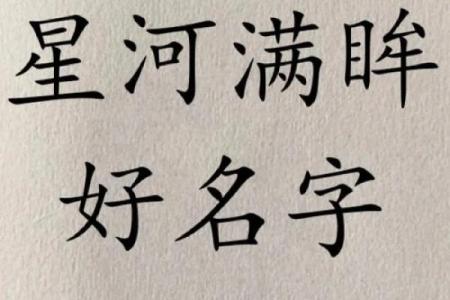 星河满眸
好名字